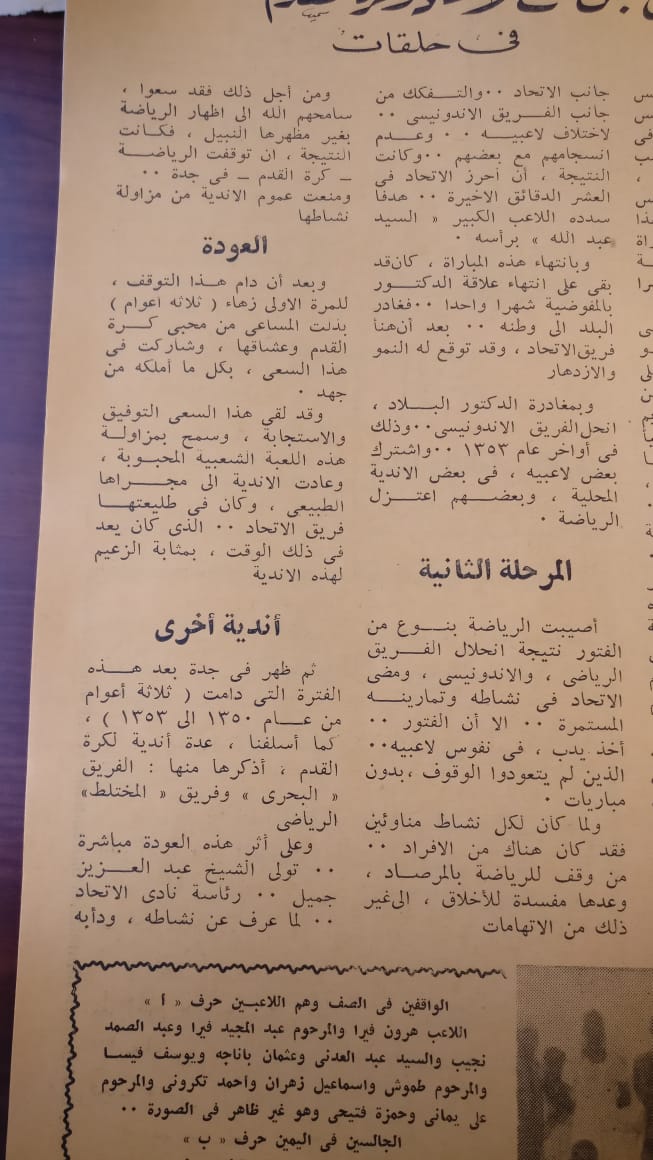 فى حلقات
جانب الاتحاد ٠٠ والتـــفكك من
جانب الفـــريق الاندونيسى ٠٠
لاختلاف لاعبيـــه ٠ ٠ وعـــدم
انسجامهم مع بعضهم ٠٠ وكانت
النتيجة ، أن أحرز الاتحاد فى
العشر الدقائق الاخيرة ٠٠ هدفا
سدده اللاعب الكبير « السيد
عبد الله » برأسه ٠
وبانتهاء هذه المباراة ، كان قد
بقى على انتهاء علاقة الدكتـــور
بالمفوضية شهرا واحدا ٠٠ فغادر
البلد الى وطنه ٠٠ بعد أن هنأ
فريق الاتحاد ، وقد توقع له النمو
والازدهار
وبمغادرة الدكتور البـــلاد ،
انحل الفريق الاندونيسى ٠٠ وذلك
فى أواخر عام ١٣٥٣ ٠٠ واشترك
بعض لاعبيه ، فى بعض الاندية
المحلية ، وبعضـــهم اعتـــزل
الرياضة ٠
المرحلة الثانية
أصيبت الرياضة بنـــوع من
الفتور نتيجة انحلال الفـــريق
الرياضى ، والاندونيسى ، ومضى
الاتحاد فى نشاطه وتمارينـــه
المستمرة ٠٠ الا أن الفتور ٠٠
أخذ يدب ، فى نفوس لاعبيه ٠٠
الذين لم يتعودوا الوقوف ، بدون
مباريات ٠
ولما كان لكل نشاط مناوئين
فقد كان هناك من الافراد ٠٠
من وقف للرياضة بالمرصـــاد ،
وعدها مفسدة للأخلاق ، الى غير
ذلك من الاتهامات
ومن أجل ذلك فقد سعوا ،
سامحهم الله الى اظهار الرياضة
بغير مظهرها النبيل ، فكـــانت
النتيجة ، ان توقفت الرياضـــة
ـ كرة القدم ـ فى جدة ٠٠
ومنعت عموم الاندية من مزاولة
نشاطها
العودة
وبعد أن دام هـــذا التوقف ،
للمرة الاولى زهاء ( ثلاثه اعوام )
بذلت المساعى من محبى كـــرة
القدم وعشاقها ، وشاركت فى
هذا السعى ، بكل ما أملكه من
جهد ٠
وقد لقى هذا السعى التوفيق
والاستجابة ، وسمح بمزاولـــة
هذه اللعبة الشعبية المحبوبة ،
وعادت الاندية الى مجـــراها
الطبيعى ، وكان فى طليعتهـــا
فريق الاتحاد ٠٠ الذى كان يعد
فى ذلك الوقت ، بمثابة الزعيم
لهذه الاندية
أندية أخرى
ثم ظهر فى جدة بعد هـــذه
الفترة التى دامت ( ثلاثة أعوام
من عـــام ١٣٥٠ الى ١٣٥٣ ) ،
كما أسلفنا ، عدة أندية لكرة
القدم ، أذكرها منها : الفريق
« البحرى » وفريق « المختلط»
الرياضى
وعلى أثر هذه العودة مباشرة
٠٠ تولى الشيخ عبد العـــزيز
جميل ٠٠ رئاسة نادى الاتحاد
٠٠ لما عرف عن نشاطه ، ودأبه
الواقفين فى الصف وهم اللاعبـــين حرف « أ »
اللاعب هرون فيرا والمرحوم عبد المجيد فيرا وعبد الصمد
نجيب والسيد عبد العدنى وعثمان باناجه ويوسف فيســا
والمرحوم طموش واسماعيل زهران وأحمد تكرونى والمرحوم
على يمانى وحمزة فتيحى وهو غير ظاهر فى الصورة ٠٠
الجالسين فى اليمين حرف « ب »